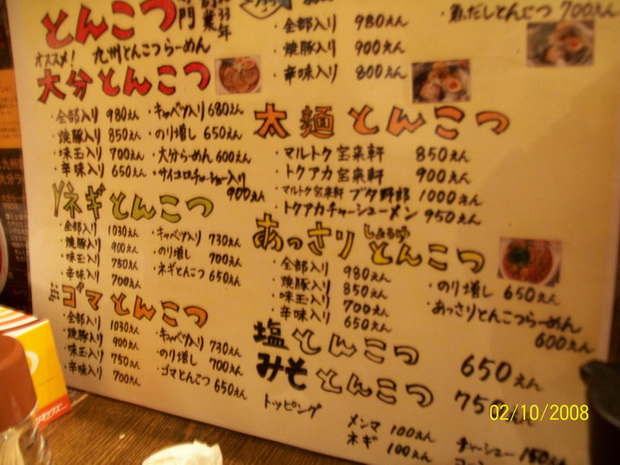 とんこつ
オススメ! 九州とんこつらーめん
大分とんこつ
・全部入り 980えん
・焼豚入り 850えん
・味玉入り 700えん
・辛味入り 650えん
・キャベツ入り 680えん
・のり増し 650えん
・大分らーめん 600えん
・サイコロチャーシュー入り
900えん
ネギとんこつ
・全部入り 1030えん
・焼豚入り 900えん
・味玉入り 750えん
・辛味入り 700えん
・キャベツ入り 730えん
・のり増し 700えん
・ネギとんこつ 650えん
ゴマとんこつ
・全部入り 1030えん
・焼豚入り 900えん
・味玉入り 750えん
・辛味入り 700えん
・キャベツ入り 730えん
・のり増し 700えん
・ゴマとんこつ 650えん
・全部入り 980えん
・焼豚入り 900えん
・辛味入り 800えん
・魚だしとんこつ 700えん
太麺とんこつ
・マルトク宝来軒 850えん
・トクアカ宝来軒 900えん
・マルトク宝来軒 ブタ野郎 1000えん
・トクアカチャーシューメン 950えん
あっさりしょうゆとんこつ
・全部入り 980えん
・焼豚入り 850えん
・味玉入り 700えん
・辛味入り 650えん
・のり増し 650えん
・あっさりとんこつらーめん
600えん
塩とんこつ 650えん
みそとんこつ 750えん
トッピング
メンマ 100えん
ネギ 100えん
チャーシュー 150えん
02/10/2008